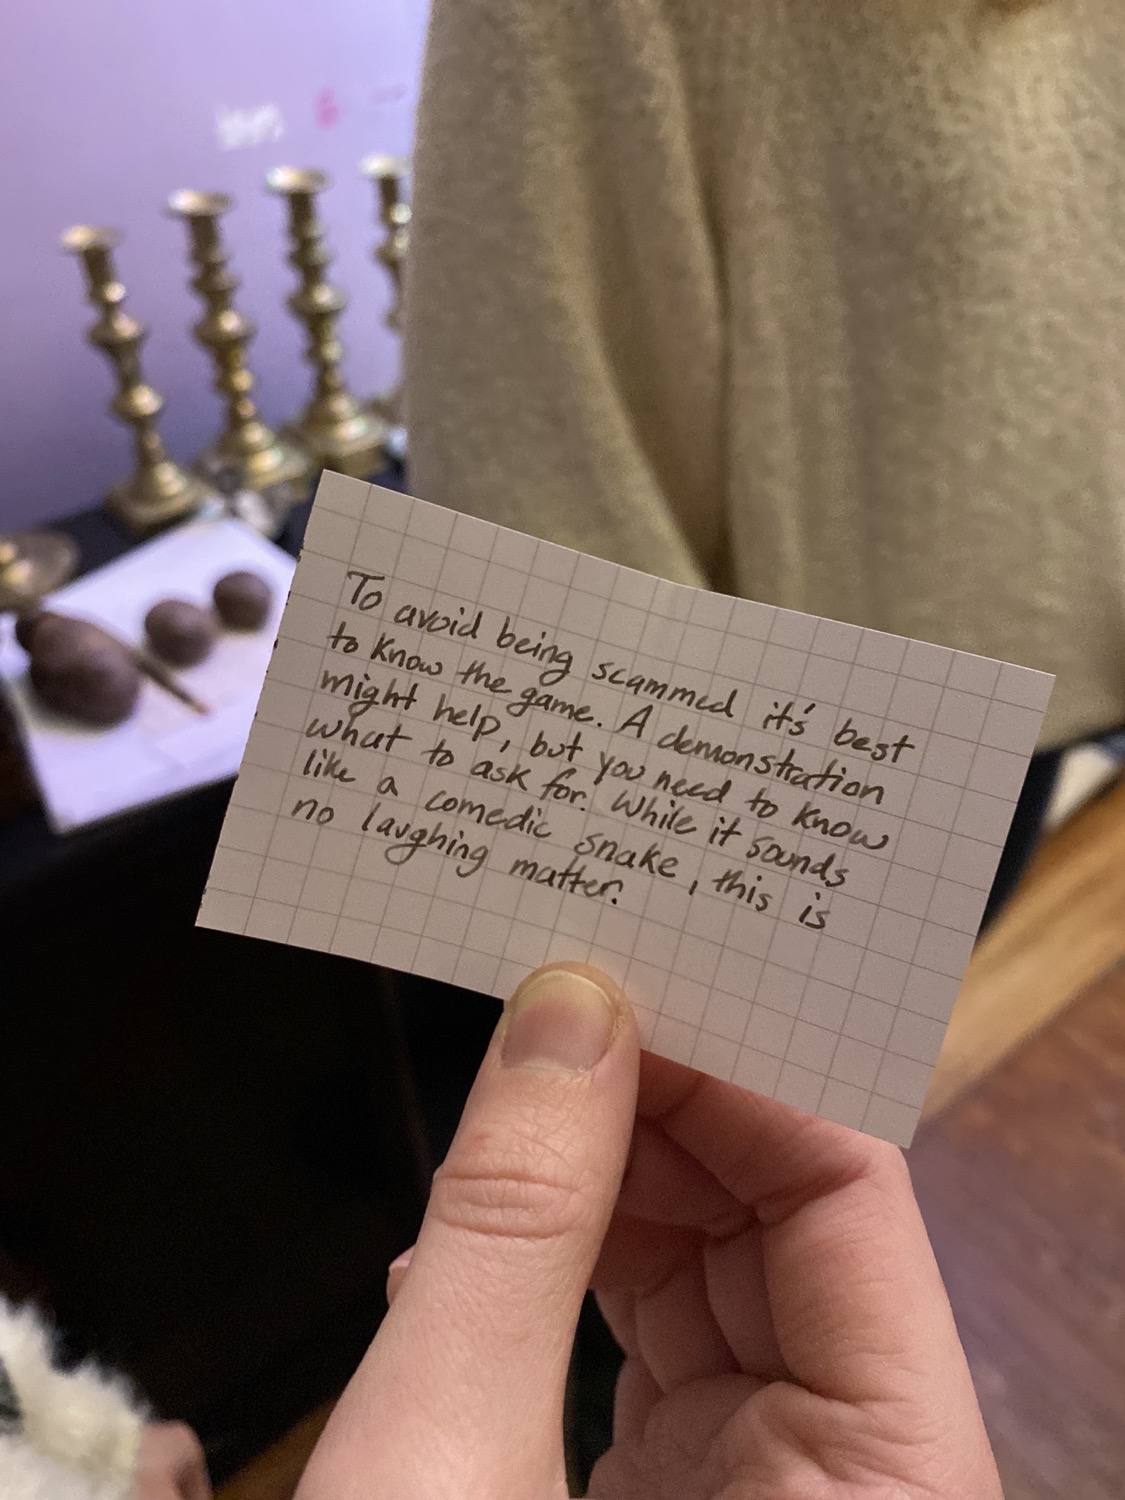 To avoid being scammed it's best
to know the game. A demonstration
might help, but you need to know
what to ask for. While it sounds
like a comedic snake, this is
no laughing matter.